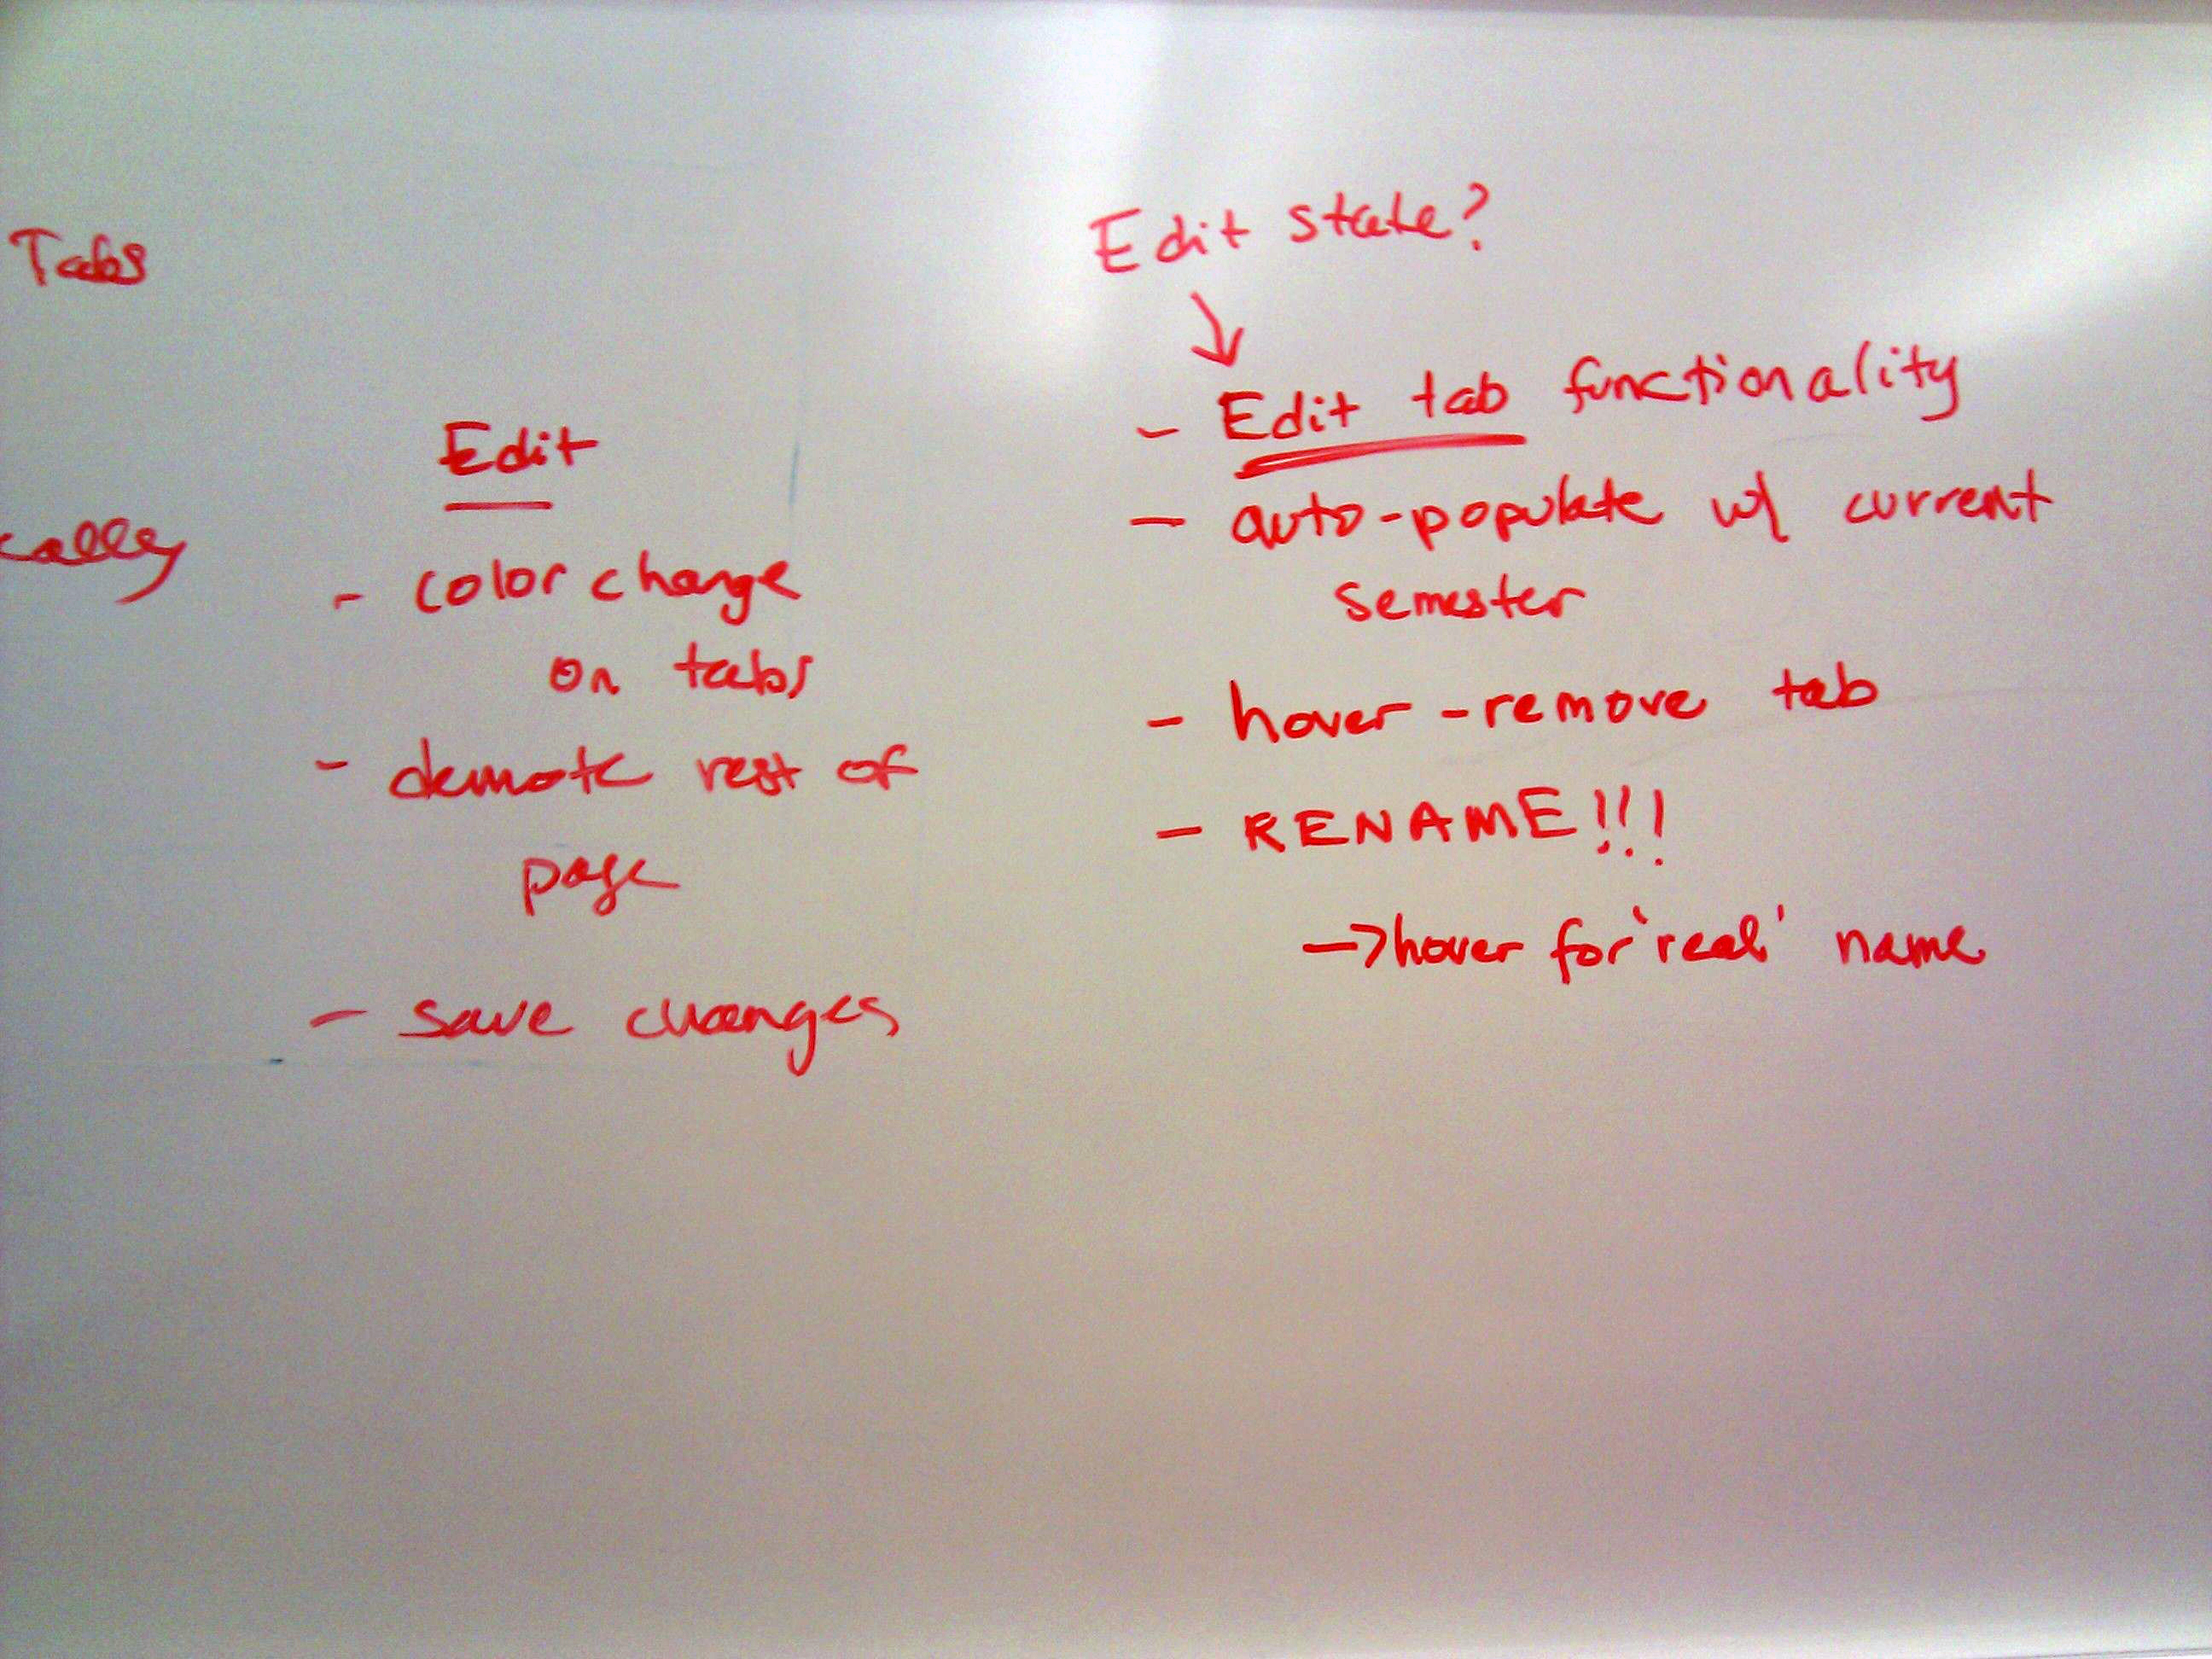 Tabs
cally
Edit
- color change
on tabs
- demote rest of
page
- save changes
Edit state?
↓
- Edit tab functionality
- auto-populate w/ current
semester
- hover - remove tab
- RENAME!!!
→ hover for 'real' name